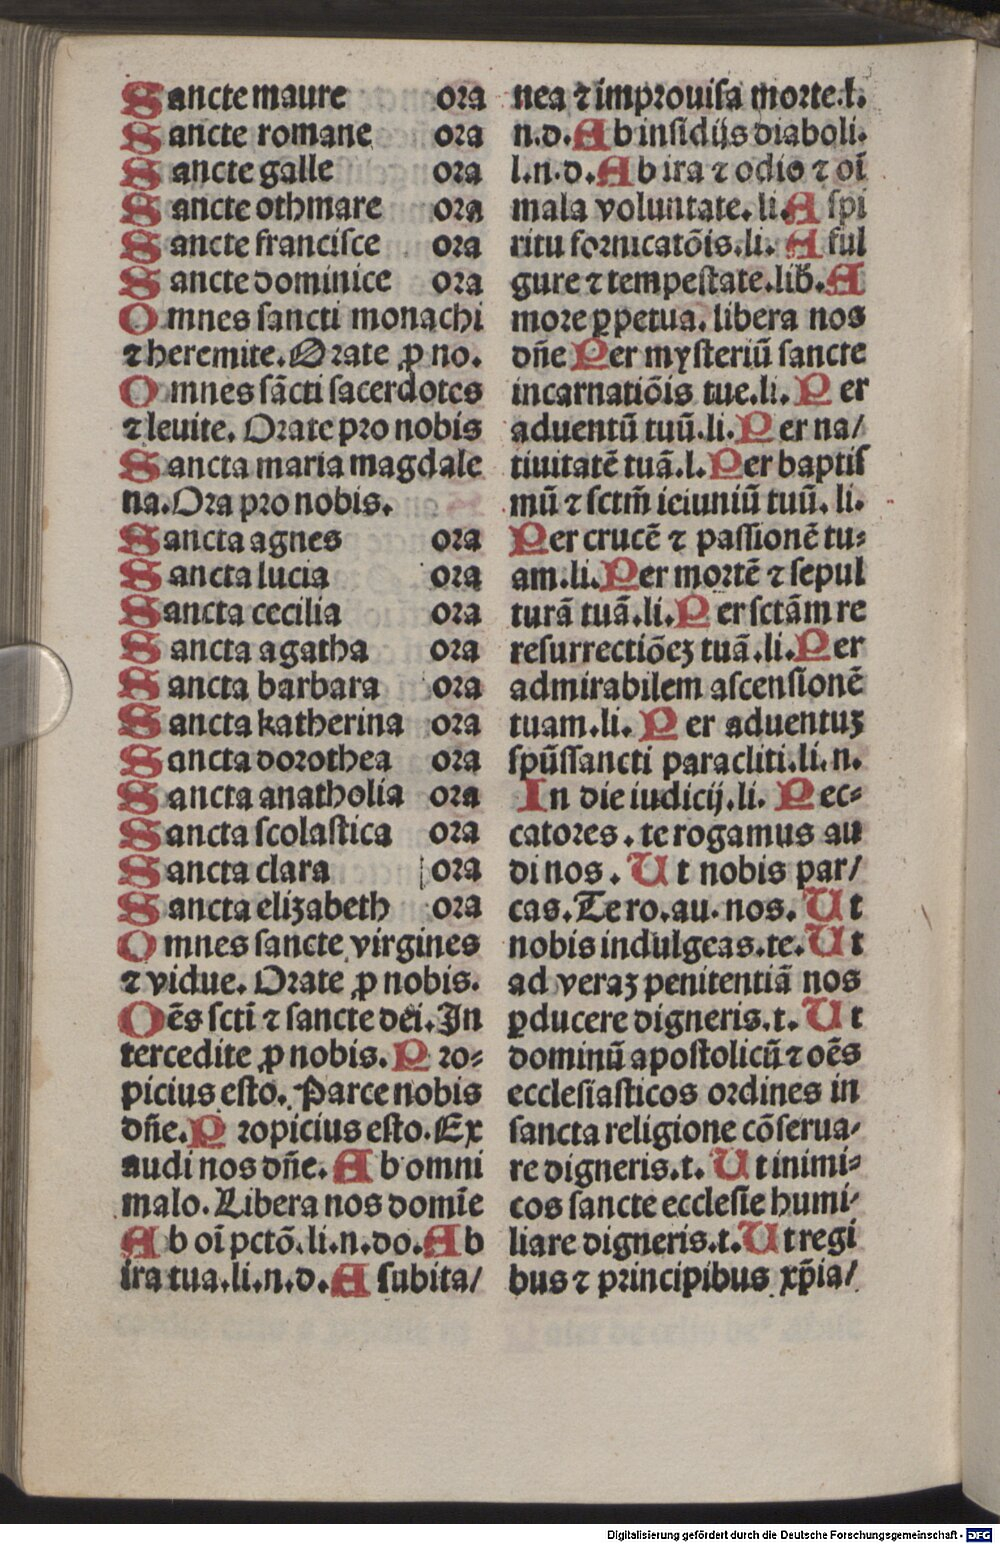 Sancte maure ora
Sancte romane ora
Sancte galle ora
Sancte othmare ora
Sancte franciſce ora
Sancte dominice ora
Omnes ſancti monachi
⁊ heremite. Orate ꝓ no.
Omnes ſācti ſacerdotes
⁊ leuite. Orate pro nobis
Sancta maria magdale
na. Ora pro nobis.
Sancta agnes ora
Sancta lucia ora
Sancta cecilia ora
Sancta agatha ora
Sancta barbara ora
Sancta katherina ora
Sancta dorothea ora
Sancta anatholia ora
Sancta ſcolaſtica ora
Sancta clara ora
Sancta elizabeth ora
Omnes ſancte virgines
⁊ vidue. Orate ꝓ nobis.
Oēs ſctī ⁊ ſancte dei. In
tercedite ꝓ nobis. Pro⸗
picius eſto. Parce nobis
dn̄e. Propicius eſto. Ex
audi nos dn̄e. Ab omni
malo. Libera nos domīe
Ab oī pctō. li.n.do. Ab
ira tua.li.n.d. A ſubita/
nea ⁊ improuiſa morte.l.
n.d. Ab inſidijs diaboli.
l.n.d. Ab ira ⁊ odio ⁊ oī
mala voluntate. li. A ſpi
ritu fornicatōis.li. A ful
gure ⁊ tempeſtate.lib. A
more ꝑpetua. libera nos
dn̄e Per myſteriū ſancte
incarnatiōis tue.li. Per
aduentū tuū.li. Per na/
tiuitatē tuā.l. Per baptiſ
mū ⁊ ſctm̄ ieiuniū tuū. li.
Per crucē ⁊ paſſionē tu⸗
am.li. Per mortē ⁊ ſepul
turā tuā.li. Per ſctām re
reſurrectiōeꝫ tuā.li. Per
admirabilem aſcenſionē
tuam.li. Per aduentuꝫ
ſpūſſancti paracliti.li.n.
In die iudicij.li. Pec⸗
catores. te rogamus au
di nos. Ut nobis par/
cas. Te ro.au.nos. Ut
nobis indulgeas.te. Ut
ad veraꝫ penitentiā nos
ꝑducere digneris.t. Ut
dominū apoſtolicū ⁊ oēs
eccleſiaſticos ordines in
ſancta religione cōſerua⸗
re digneris.t. Ut inimi⸗
cos ſancte eccleſie humi⸗
liare digneris.t. Ut regi
bus ⁊ principibus xp̄ia/
Digitalisierung gefördert durch die Deutsche Forschungsgemeinschaft - DFG